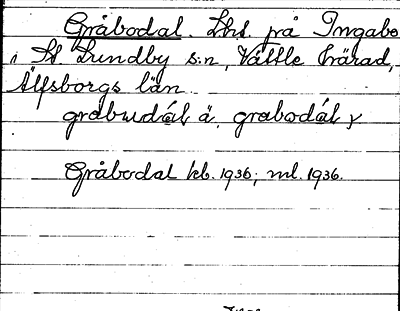 Gråbodal. Lht på Ingabo
i St. Lundby s:n, Vättle härad,
Älfsborgs län.
grabudál ä. grabodál y
Gråbodal kb. 1936; ml. 1936.